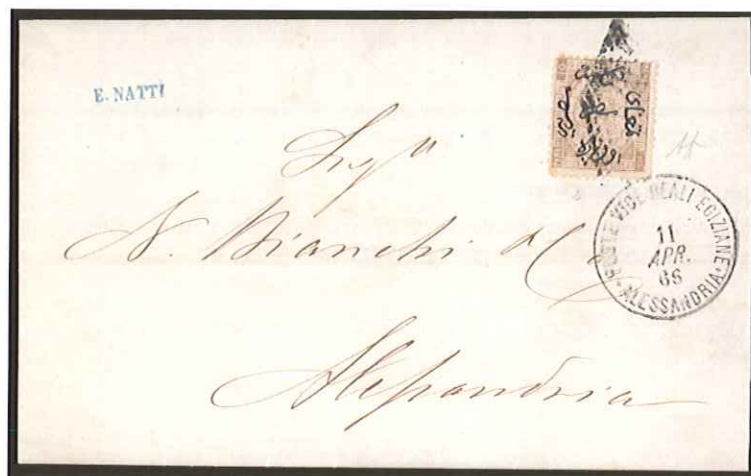 E. NATTI
Sigri
N. Bianchi & C.
Alessandria
POSTE VICE-REALI EGIZIANE
11
APR.
66
ALESSANDRIA